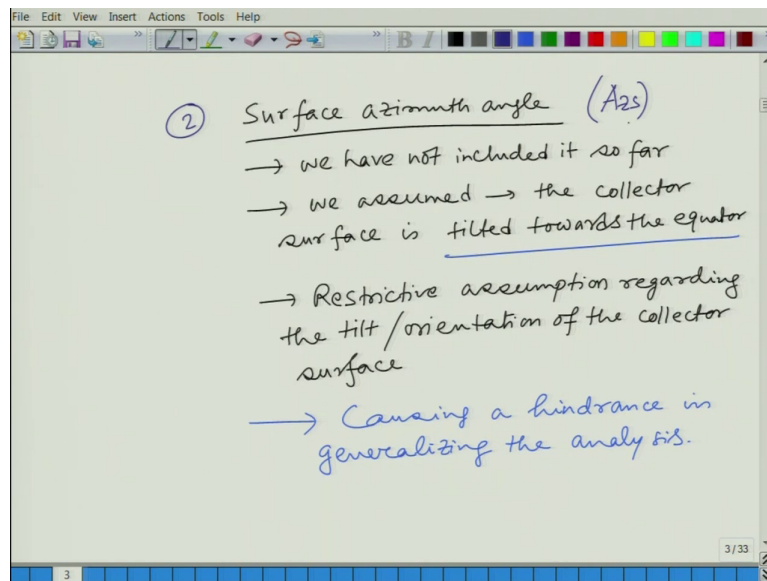 File Edit View Insert Actions Tools Help
B I
② Surface azimuth angle (Azs)
→ we have not included it so far
→ we assumed → the collector
surface is tilted towards the equator
→ Restrictive assumption regarding
the tilt/orientation of the collector
surface
→ Causing a hindrance in
generalizing the analysis.
3/33
3